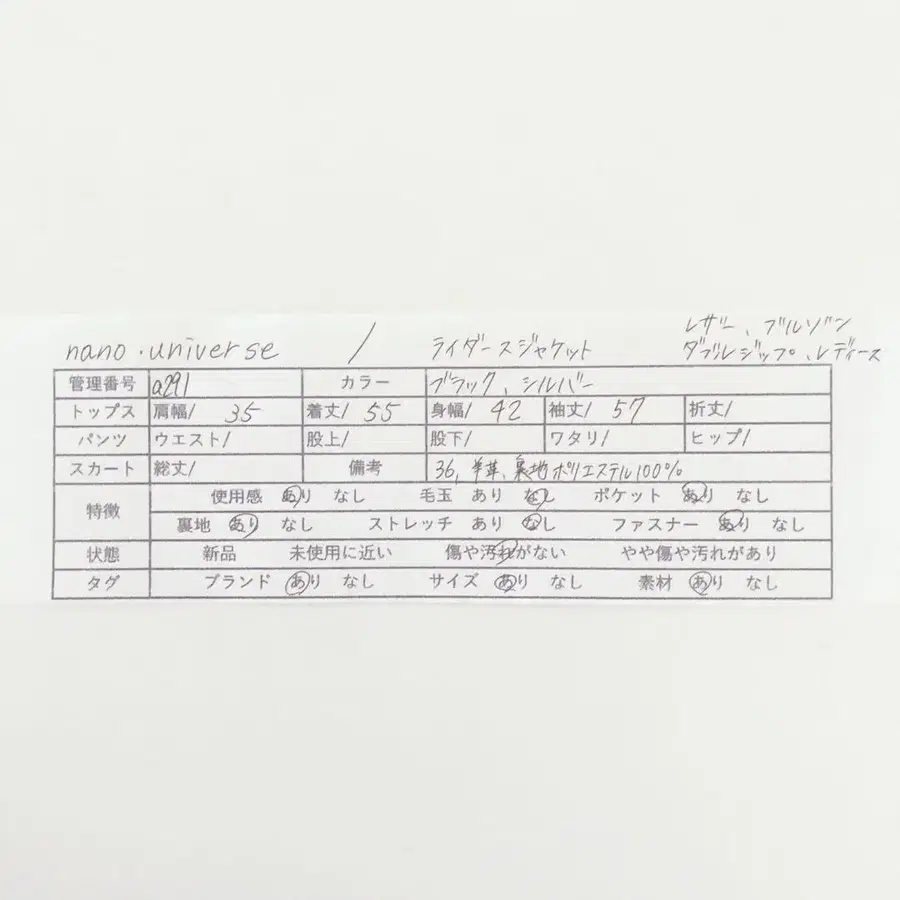 レザー、ブルゾン
nano・universe / ライダースジャケット ダブルジップ、レディース
管理番号 a291 カラー ブラック、シルバー
トップス 肩幅/ 35 着丈/ 55 身幅/ 42 袖丈/ 57 折丈/
パンツ ウエスト/ 股上/ 股下/ ワタリ/ ヒップ/
スカート 総丈/ 備考 36, 羊革、裏地ポリエステル100%
特徴 使用感 あり なし 毛玉 あり なし ポケット あり なし
裏地 あり なし ストレッチ あり なし ファスナー あり なし
状態 新品 未使用に近い 傷や汚れがない やや傷や汚れがあり
タグ ブランド あり なし サイズ あり なし 素材 あり なし